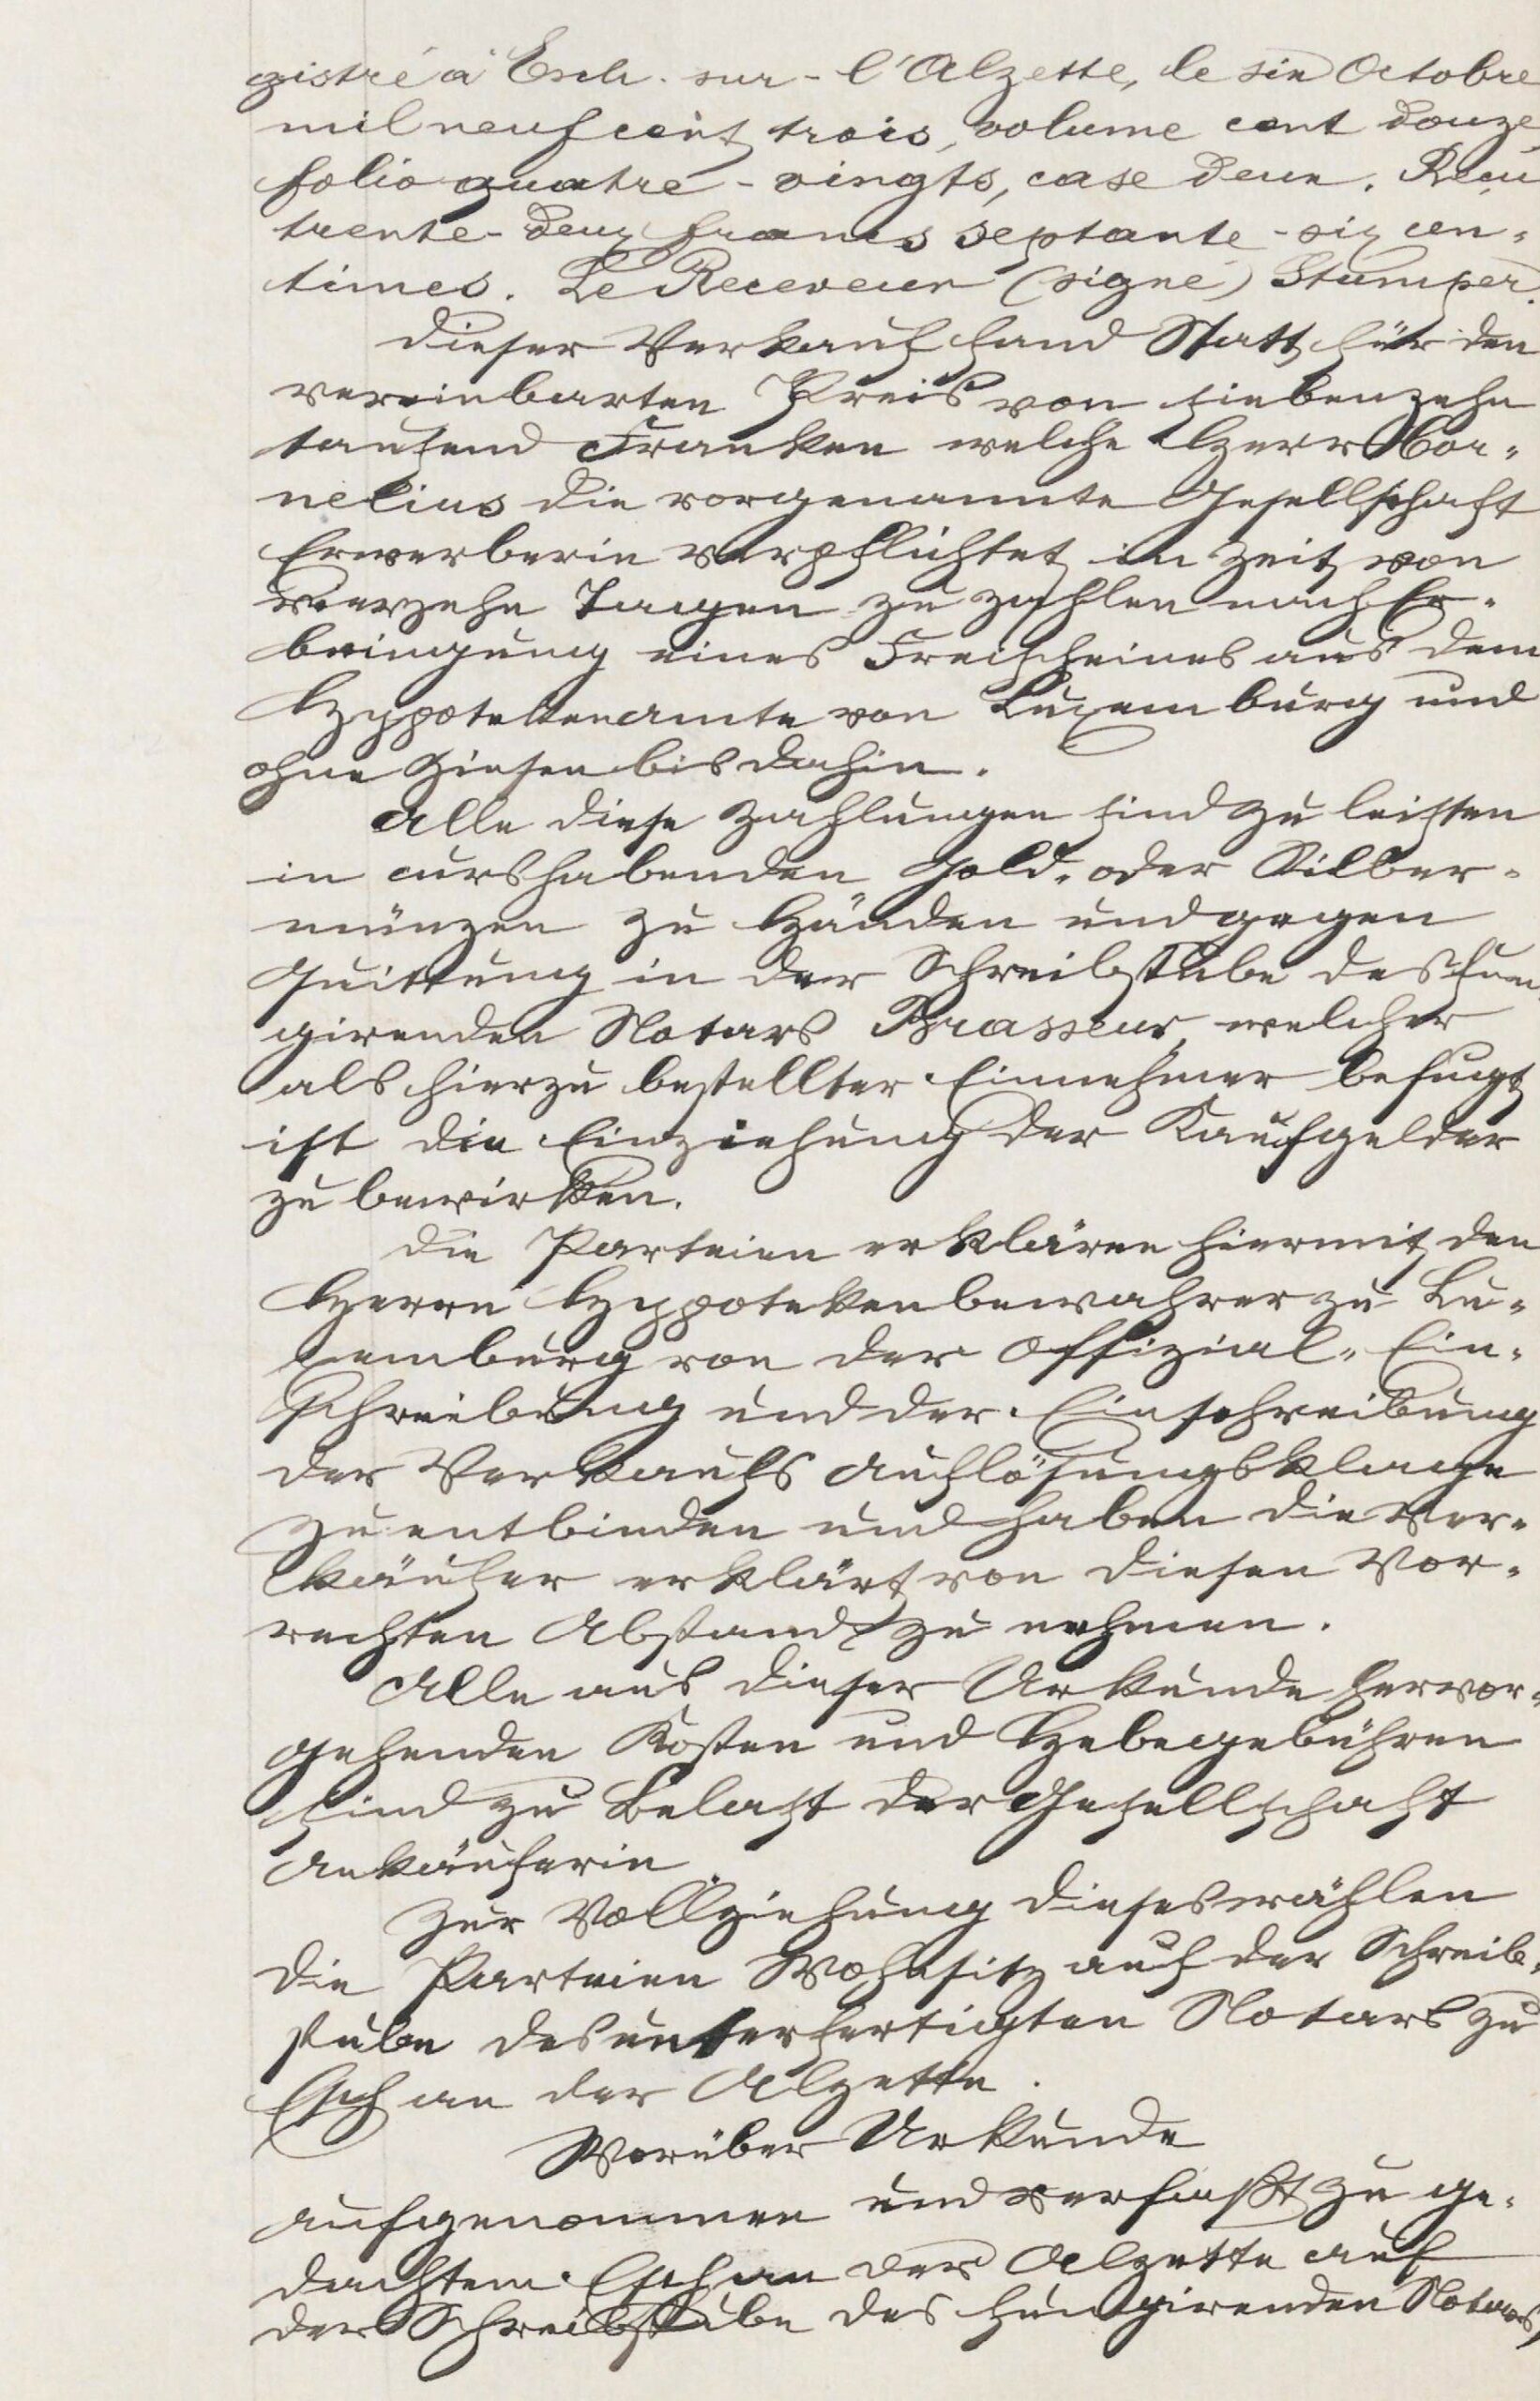 gistré à Esch-sur-l'Alzette, le six Octobre
mil neuf cent trois, volume cent douze,
folio quatre-vingts, case deux. Reçu
trente-deux francs septante-six cen-
times. Le Receveur (signé) Stumper.
Dieser Verkauf fand Statt für den
vereinbarten Preis von siebenzehn
tausend Franken welche Herr Cor-
nelius die vorgenannte Gesellschaft
Erwerberin verpflichtet in Zeit von
vierzehn Tagen zu zahlen nach Er-
bringung eines Freischeines aus dem
Hypotekenamte von Luxemburg und
ohne Zinsen bis dahin.
Alle diese Zahlungen sind zu leisten
in curshabenden Gold- oder Silber-
münzen zu Händen und gegen
Quittung in der Schreibstube des fun
girenden Notars Brasseur, welcher
als hierzu bestellter Einnehmer befugt
ist die Einziehung der Kaufgelder
zu bewirken.
Die Parteien erklären hiermit den
Herrn Hypotekenbewahrer zu Lu-
xemburg von der Offizial-Ein-
schreibung und der Einschreibung
der Verkaufs Auflösungsklage
zu entbinden und haben die Ver-
käufer erklärt von diesen Vor-
rechten Abstand zu nehmen.
Alle aus dieser Urkunde hervor-
gehenden Kosten und Hebegebühren
sind zu Belast der Gesellschaft
Ankäuferin.
Zur Vollziehung dieses wählen
die Parteien Wohnsitz auf der Schreib-
stube des unterfertigten Notars zu
Esch an der Alzette.
Worüber Urkunde
aufgenommen und verfaßt zu ge-
dachtem Esch an der Alzette auf
der Schreibstube des fungirenden Notars,